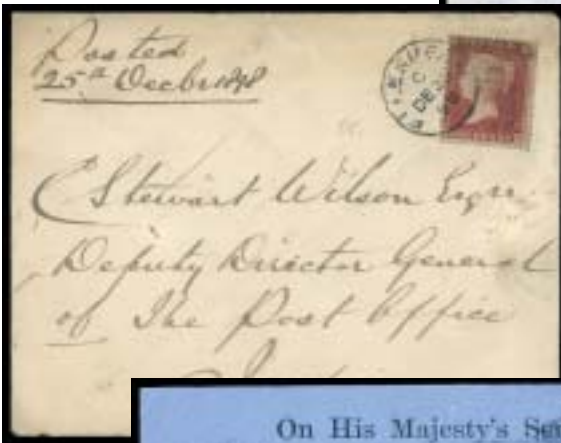 Posted
25th Decbr 1898
C Stewart Wilson Esqre
Deputy Director General
of The Post Office
On His Majesty's